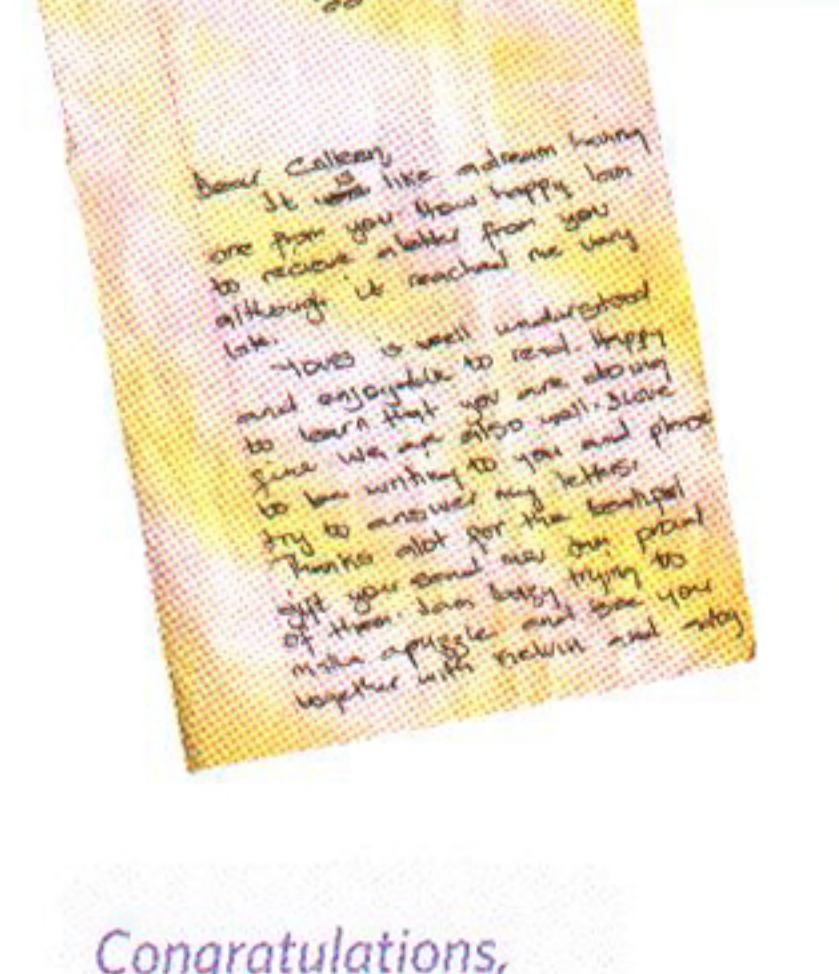 Dear Colleen,
It is like a dream having
one from you. How happy Iam
to recieve a letter from you
although it reached me very
late.
Yours is well understood
and enjoyable to read. Happy
to learn that you are doing
fine We are also well. I love
to be writing to you and please
try to answer my letters.
Thanks alot for the beautiful
gift you send me Iam proud
of them. Iam busy trying to
make apuzzle and see your
together with Melvin and
Congratulations,